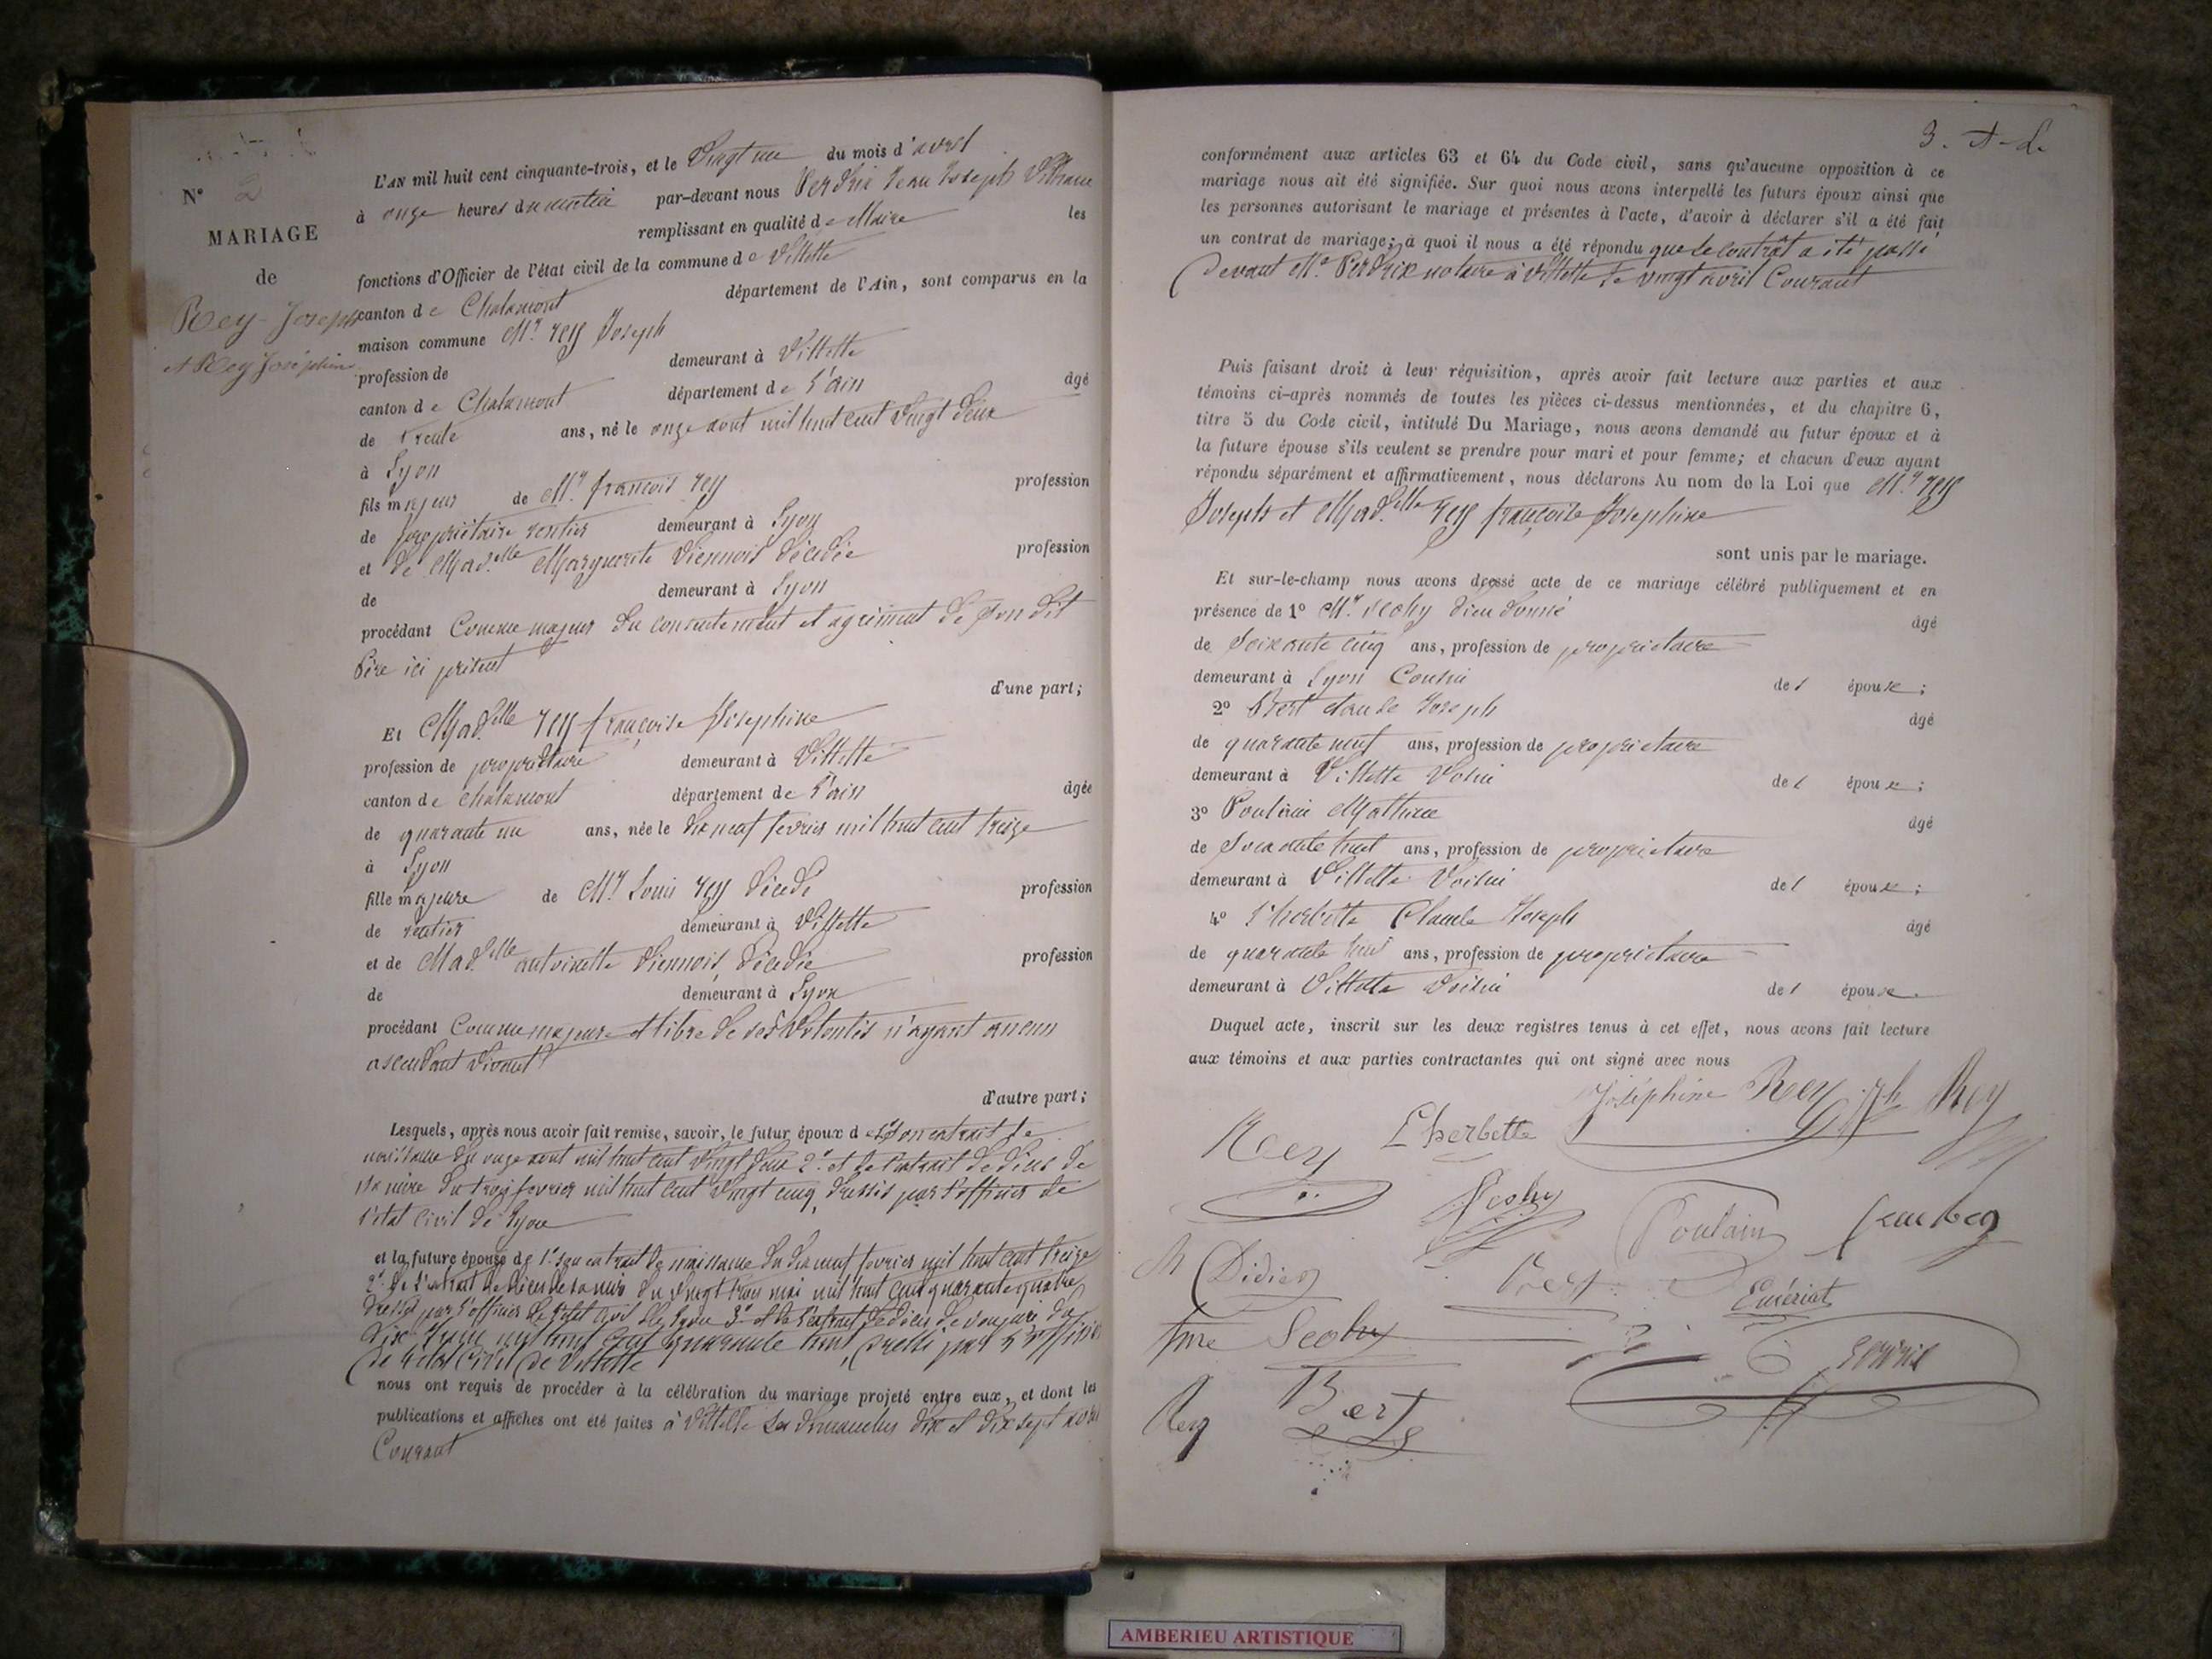 N° 2
MARIAGE
de
Rey Joseph
et Rey Joséphine
L'AN mil huit cent cinquante-trois, et le vingt un du mois d'avril
à onze heures du matin par-devant nous Perdrix Jean Joseph
remplissant en qualité de Maire les
fonctions d'Officier de l'état civil de la commune de Villette
canton de Chalamont département de l'Ain, sont comparus en la
maison commune Mr. rey Joseph
profession de demeurant à Villette
canton de Chalamont département de l'ain âgé
de trente ans, né le onze aout mil huit cent vingt deux
à Lyon
fils majeur de Mr. francois rey profession
de propriétaire rentier demeurant à Lyon
et de Mad.elle Marguerite Viennois décédée profession
de demeurant à Lyon
procédant Comme majeur du consentement et agrément de son dit
Père ici présent
d'une part;
Et Mad.elle rey françoise Josephine
profession de propriétaire demeurant à Villette
canton de chalamont département de l'ain âgée
de quarante un ans, née le dix neuf fevrier mil huit cent treize
à Lyon
fille majeure de Mr. Louis rey décédé profession
de rentier demeurant à Villette
et de Mad.elle antoinette Viennois, décédée profession
de demeurant à Lyon
procédant Comme majeure et libre de ses volontés n'ayant aucun
ascendant vivant
d'autre part;
Lesquels, après nous avoir fait remise, savoir, le futur époux de son extrait de
naissance du onze aout mil huit cent vingt deux 2° et de l'extrait de décès de
sa mère du trois fevrier mil huit cent vingt cinq, dressés par l'officier de
l'état civil de Lyon
et la future épouse de 1° son extrait de naissance du dix neuf fevrier mil huit cent treize
2° de l'extrait de décès de sa mère du vingt trois mai mil huit cent quarante quatre,
dressé par l'officier de l'état civil de Lyon 3° et de l'extrait de décès de son père du
dix mil huit cent quarante huit, dressé par l'officier
de l'état civil de Villette
nous ont requis de procéder à la célébration du mariage projeté entre eux, et dont les
publications et affiches ont été faites à Villette les dimanches dix et dix sept avril
Courant
3.
conformément aux articles 63 et 64 du Code civil, sans qu'aucune opposition à ce
mariage nous ait été signifiée. Sur quoi nous avons interpellé les futurs époux ainsi que
les personnes autorisant le mariage et présentes à l'acte, d'avoir à déclarer s'il a été fait
un contrat de mariage; à quoi il nous a été répondu que le contrât a été passé
devant Me. Perdrix notaire à Villette le vingt avril Courant
Puis faisant droit à leur réquisition, après avoir fait lecture aux parties et aux
témoins ci-après nommés de toutes les pièces ci-dessus mentionnées, et du chapitre 6,
titre 5 du Code civil, intitulé Du Mariage, nous avons demandé au futur époux et à
la future épouse s'ils veulent se prendre pour mari et pour femme; et chacun d'eux ayant
répondu séparément et affirmativement, nous déclarons Au nom de la Loi que Mr. rey
Joseph et Mad.elle rey françoise Josephine
sont unis par le mariage.
Et sur-le-champ nous avons dressé acte de ce mariage célébré publiquement et en
présence de 1° Mr. dieu donné âgé
de Soixante cinq ans, profession de proprietaire
demeurant à Lyon Cousin de l'épouse;
2° Bert claude Joseph âgé
de quarante neuf ans, profession de proprietaire
demeurant à Villette Voisin de l'épouse;
3° Poulain Mathieu âgé
de Soixante huit ans, profession de proprietaire
demeurant à Villette Voisin de l'épouse;
4° L'herbette Claude Joseph âgé
de quarante ans, profession de proprietaire
demeurant à Villette Voisin de l'épouse.
Duquel acte, inscrit sur les deux registres tenus à cet effet, nous avons fait lecture
aux témoins et aux parties contractantes qui ont signé avec nous
Joséphine Rey Jph Rey
Rey Lherbette
Poulain
Didier
Rey Bert
AMBERIEU ARTISTIQUE